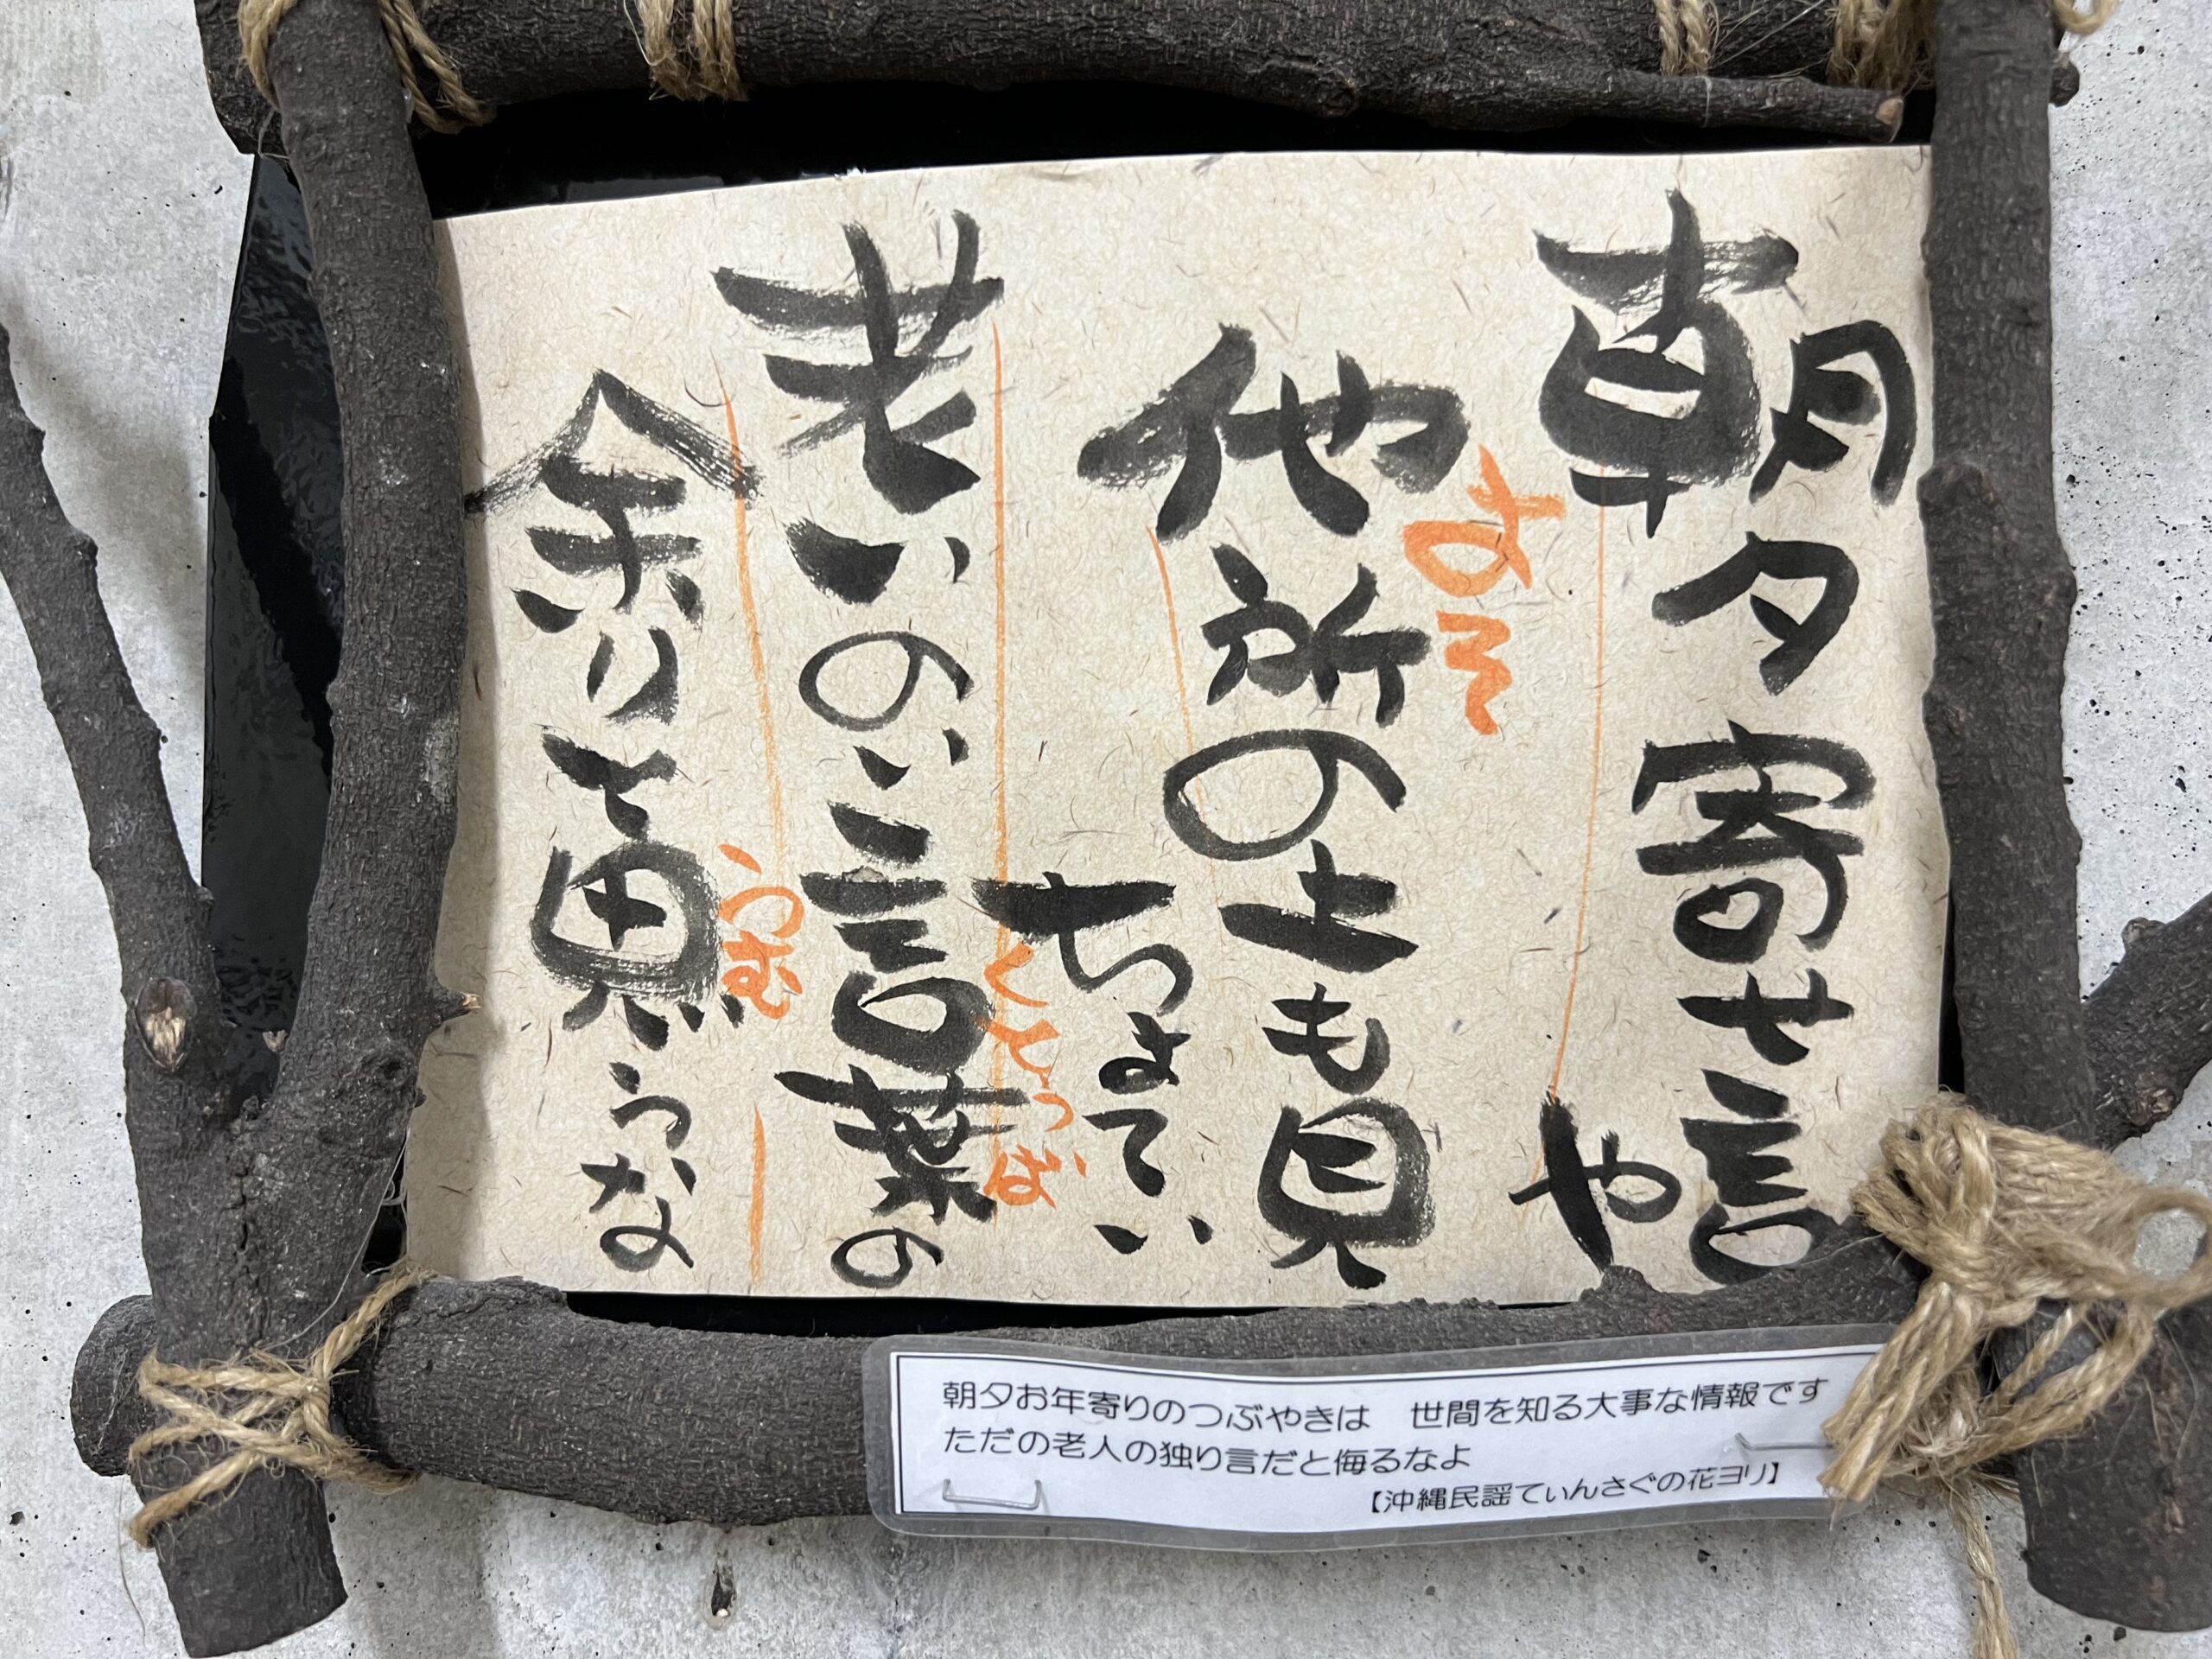 朝夕寄せ言や
他所の上も見ちょてい
よそ
老いのい言葉の
くとぅば
余りと思うな
うむ
朝夕お年寄りのつぶやきは　世間を知る大事な情報です
ただの老人の独り言だと侮るなよ
【沖縄民謡てぃんさぐの花ヨリ】